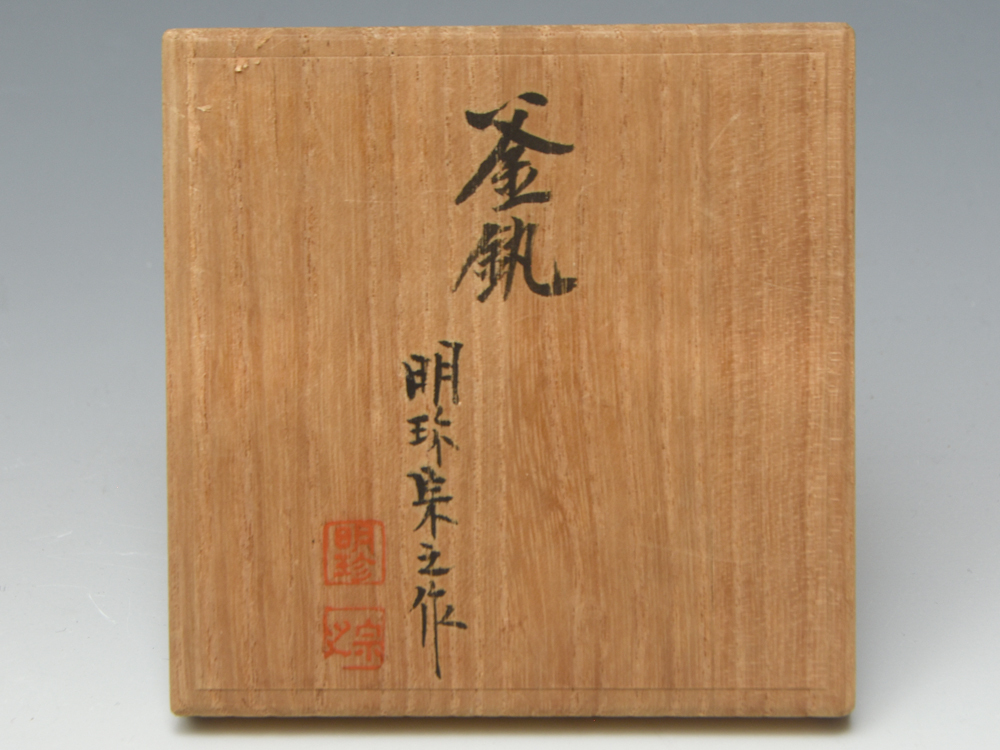 釜釻
明珍宗之作
明珍
宗之